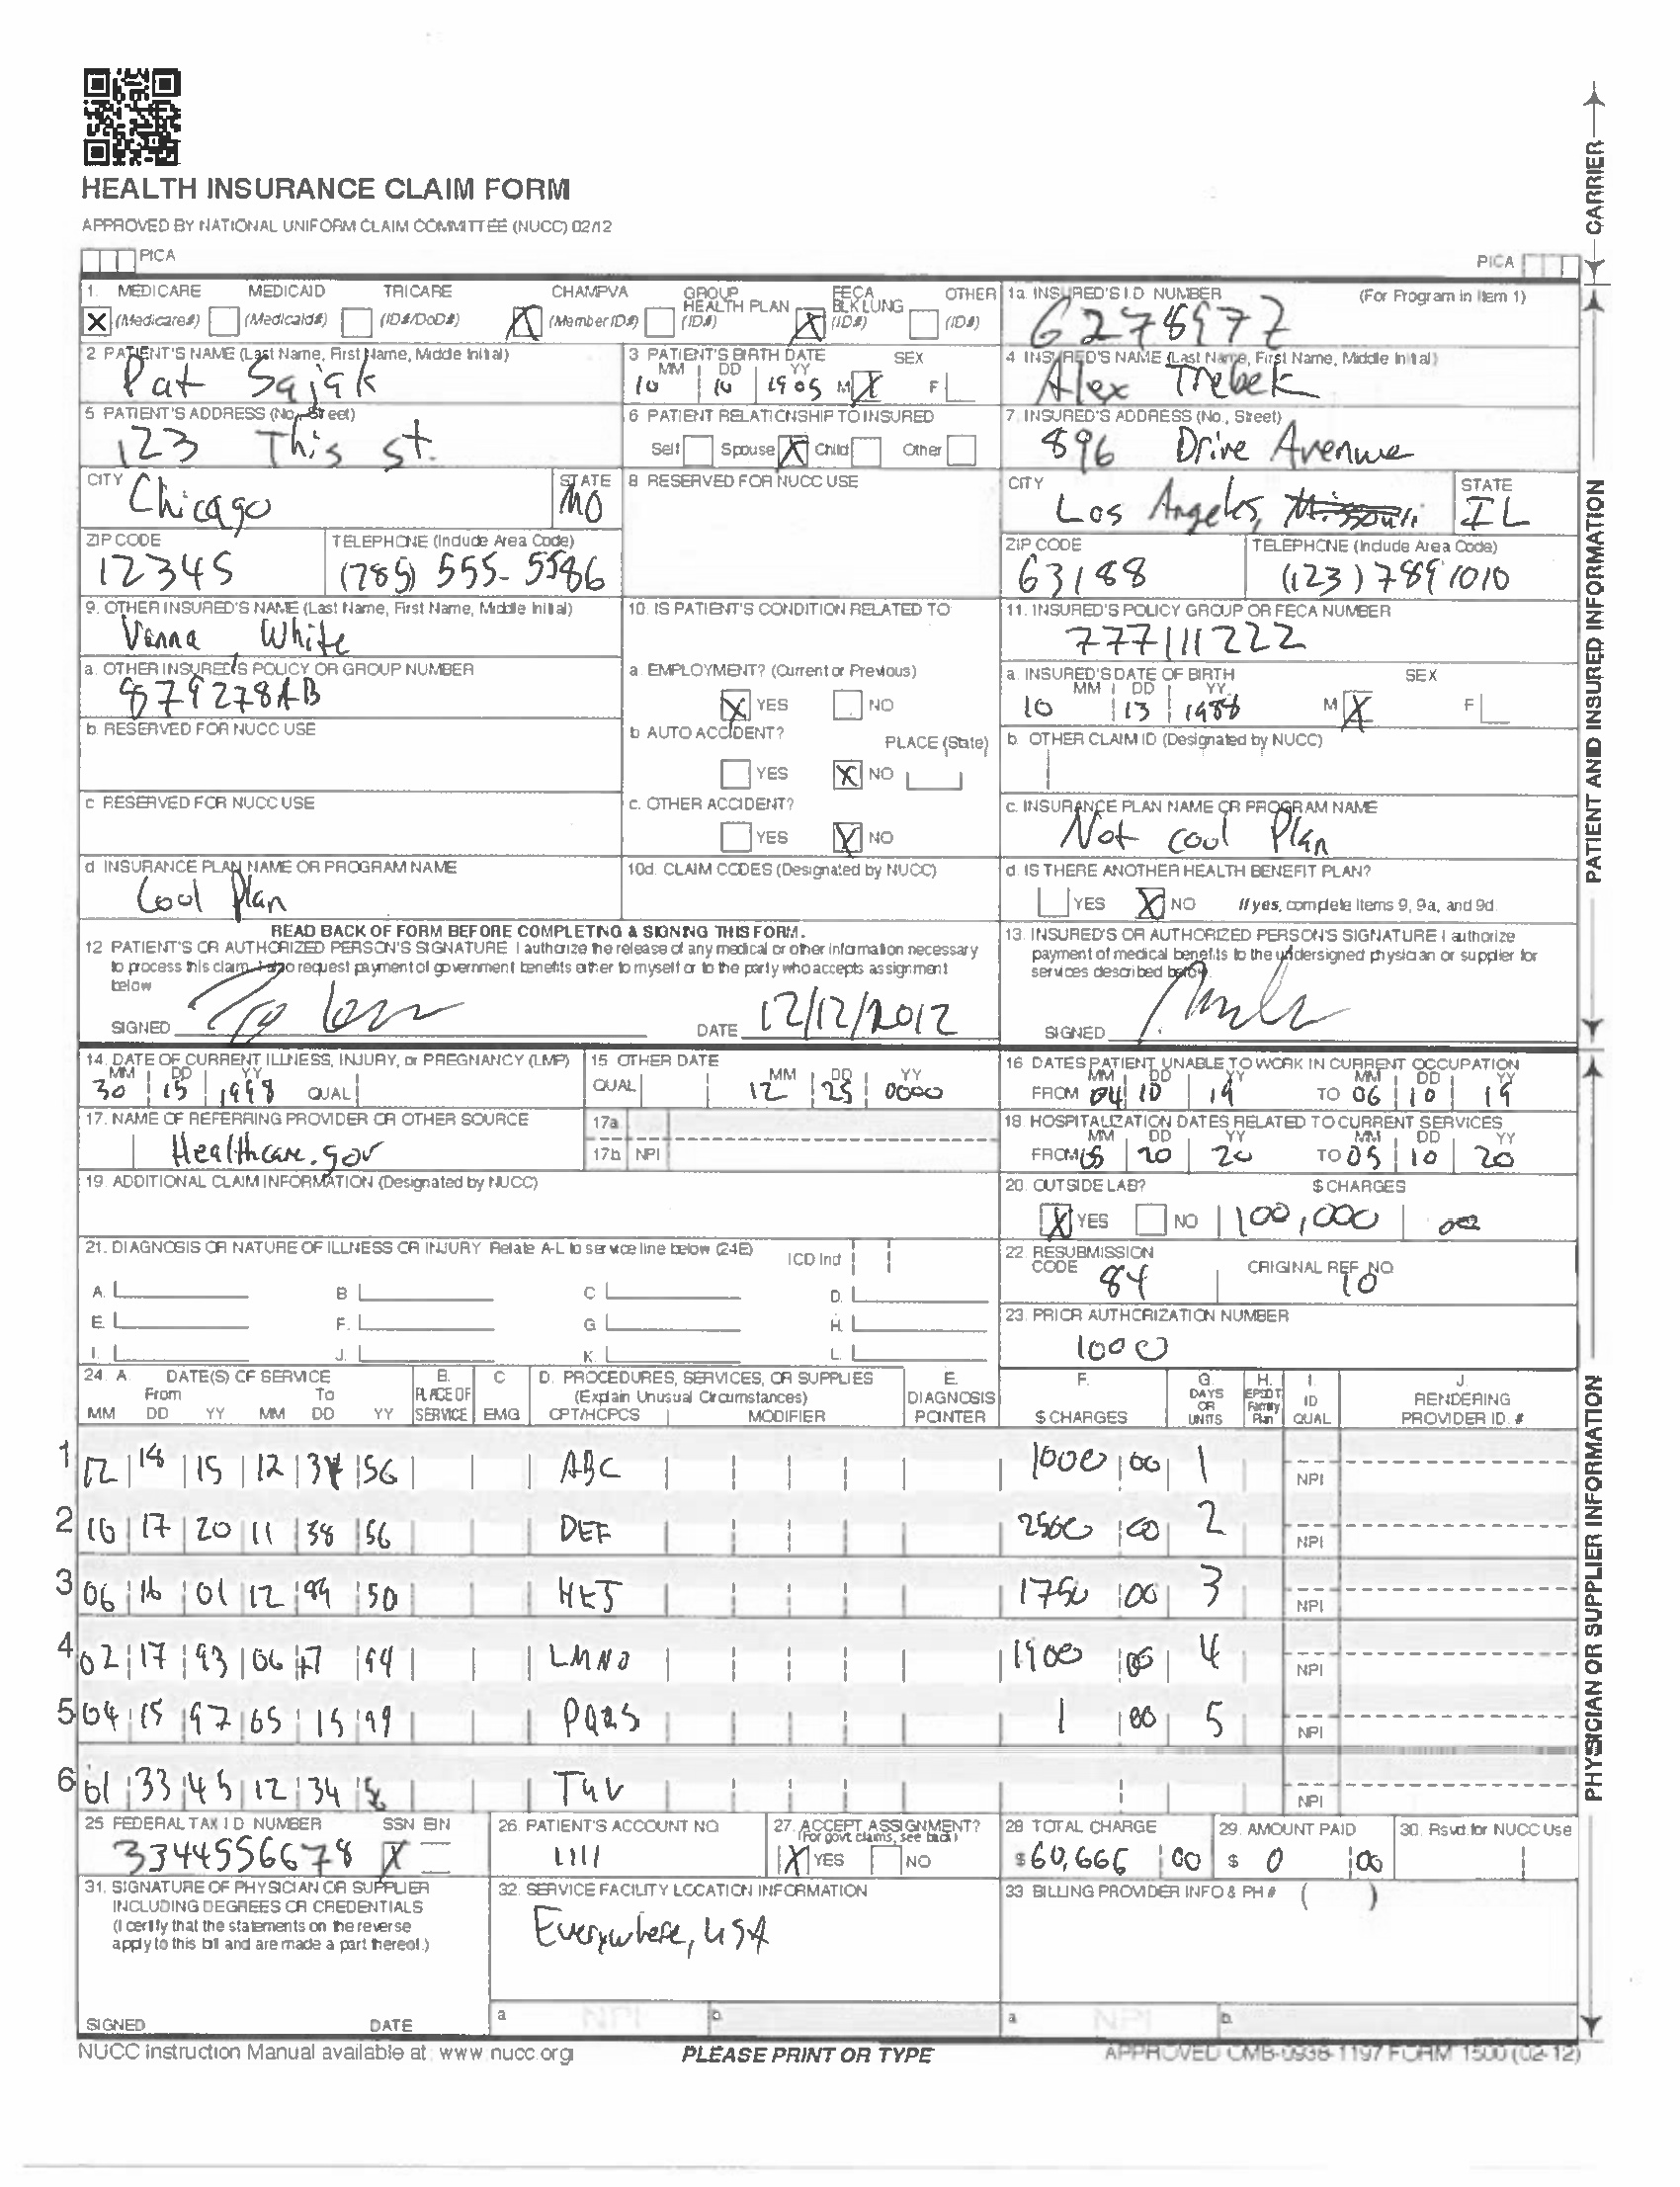 HEALTH INSURANCE CLAIM FORM
APPROVED BY NATIONAL UNIFORM CLAIM COMMITTEE (NUCC) 02/12
PICA
PICA
CARRIER
1. MEDICARE MEDICAID TRICARE CHAMPVA GROUP HEALTH PLAN FECA BLK LUNG OTHER
X (Medicare#) (Medicaid#) (ID#/DoD#) X (Member ID#) (ID#) X (ID#) (ID#)
1a. INSURED'S I.D. NUMBER (For Program in Item 1)
6278977
2 PATIENT'S NAME (Last Name, First Name, Middle Initial)
Pat Sajak
3 PATIENT'S BIRTH DATE SEX
MM DD YY
10 10 1905 M X F
4 INSURED'S NAME (Last Name, First Name, Middle Initial)
Alex Trebek
5 PATIENT'S ADDRESS (No., Street)
123 This St.
6 PATIENT RELATIONSHIP TO INSURED
Self Spouse X Child Other
7. INSURED'S ADDRESS (No., Street)
896 Drive Avenue
CITY
Chicago
STATE
MO
8 RESERVED FOR NUCC USE
CITY
Los Angeles, Missouri
STATE
IL
ZIP CODE
12345
TELEPHONE (Include Area Code)
(785) 555-5586
ZIP CODE
63188
TELEPHONE (Include Area Code)
(123) 7891010
9. OTHER INSURED'S NAME (Last Name, First Name, Middle Initial)
Vanna, White
10. IS PATIENT'S CONDITION RELATED TO
11. INSURED'S POLICY GROUP OR FECA NUMBER
777111222
a. OTHER INSURED'S POLICY OR GROUP NUMBER
879278AB
a. EMPLOYMENT? (Current or Previous)
X YES NO
a. INSURED'S DATE OF BIRTH SEX
MM DD YY
10 13 1988 M X F
b. RESERVED FOR NUCC USE
b. AUTO ACCIDENT? PLACE (State)
YES X NO
b. OTHER CLAIM ID (Designated by NUCC)
c. RESERVED FOR NUCC USE
c. OTHER ACCIDENT?
YES X NO
c. INSURANCE PLAN NAME OR PROGRAM NAME
Not cool Plan
d INSURANCE PLAN NAME OR PROGRAM NAME
Cool Plan
10d. CLAIM CODES (Designated by NUCC)
d. IS THERE ANOTHER HEALTH BENEFIT PLAN?
YES X NO If yes, complete items 9, 9a, and 9d.
PATIENT AND INSURED INFORMATION
READ BACK OF FORM BEFORE COMPLETING & SIGNING THIS FORM.
12 PATIENT'S OR AUTHORIZED PERSON'S SIGNATURE I authorize the release of any medical or other information necessary
to process this claim. I also request payment of government benefits either to myself or to the party who accepts assignment
below
SIGNED DATE 12/12/2012
13. INSURED'S OR AUTHORIZED PERSON'S SIGNATURE I authorize
payment of medical benefits to the undersigned physician or supplier for
services described below.
SIGNED
14. DATE OF CURRENT ILLNESS, INJURY, or PREGNANCY (LMP)
MM DD YY
30 15 1998 QUAL
15 OTHER DATE
QUAL MM DD YY
12 25 0000
16 DATES PATIENT UNABLE TO WORK IN CURRENT OCCUPATION
MM DD YY MM DD YY
FROM 04 10 19 TO 06 10 19
17. NAME OF REFERRING PROVIDER OR OTHER SOURCE
Healthcare.gov
17a
17b NPI
18 HOSPITALIZATION DATES RELATED TO CURRENT SERVICES
MM DD YY MM DD YY
FROM 05 20 20 TO 05 10 20
19. ADDITIONAL CLAIM INFORMATION (Designated by NUCC)
20. OUTSIDE LAB? $ CHARGES
X YES NO 100,000
21. DIAGNOSIS OR NATURE OF ILLNESS OR INJURY Relate A-L to service line below (24E) ICD Ind
A. B C D.
E. F. G H.
I. J. K. L.
22. RESUBMISSION CODE ORIGINAL REF. NO.
84 10
23. PRIOR AUTHORIZATION NUMBER
1000
24. A. DATE(S) OF SERVICE B. C D. PROCEDURES, SERVICES, OR SUPPLIES E. F. G. H. I. J.
From To PLACE OF (Explain Unusual Circumstances) DIAGNOSIS DAYS OR EPSDT Family ID RENDERING
MM DD YY MM DD YY SERVICE EMG CPT/HCPCS MODIFIER POINTER $ CHARGES UNITS Plan QUAL PROVIDER ID. #
1 12 14 15 12 34 56 ABC 1000 00 1 NPI
2 10 17 20 11 38 56 DEF 2500 00 2 NPI
3 06 16 01 12 99 50 HIJ 1750 00 3 NPI
4 02 17 93 06 17 94 LMNO 1900 00 4 NPI
5 04 15 97 05 15 99 PQRS 1 00 5 NPI
6 01 33 45 12 34 TUV NPI
25 FEDERAL TAX I D NUMBER SSN EIN
3344556678 X
26. PATIENT'S ACCOUNT NO
1111
27. ACCEPT ASSIGNMENT?
(For govt. claims, see back)
X YES NO
28 TOTAL CHARGE
$ 60,666 00
29. AMOUNT PAID
$ 0 00
30. Rsvd for NUCC Use
31. SIGNATURE OF PHYSICIAN OR SUPPLIER
INCLUDING DEGREES OR CREDENTIALS
(I certify that the statements on the reverse
apply to this bill and are made a part thereof.)
SIGNED DATE
32. SERVICE FACILITY LOCATION INFORMATION
Everywhere, USA
a NPI b.
33 BILLING PROVIDER INFO & PH # ( )
a NPI b.
PHYSICIAN OR SUPPLIER INFORMATION
NUCC Instruction Manual available at: www.nucc.org
PLEASE PRINT OR TYPE
APPROVED OMB-0938-1197 FORM 1500 (02-12)